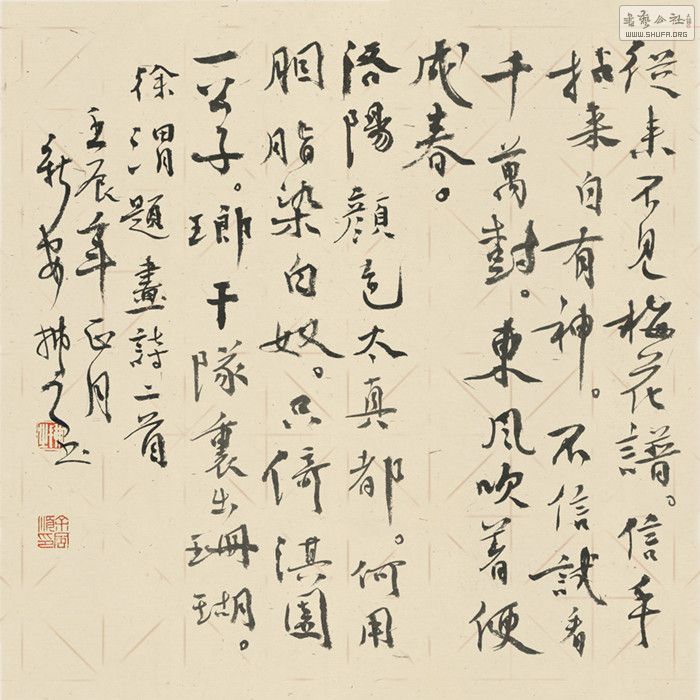 從來不見梅花譜。信手
拈來自有神。不信試看
千萬樹。東風吹着便
成春。
洛陽顏色太真都。何用
胭脂染白奴。只倚淇園
一公子。瑯干隊裏出珊瑚。
徐渭題畫詩二首
壬辰年正月
新安
書藝公社
WWW.SHUFA.ORG